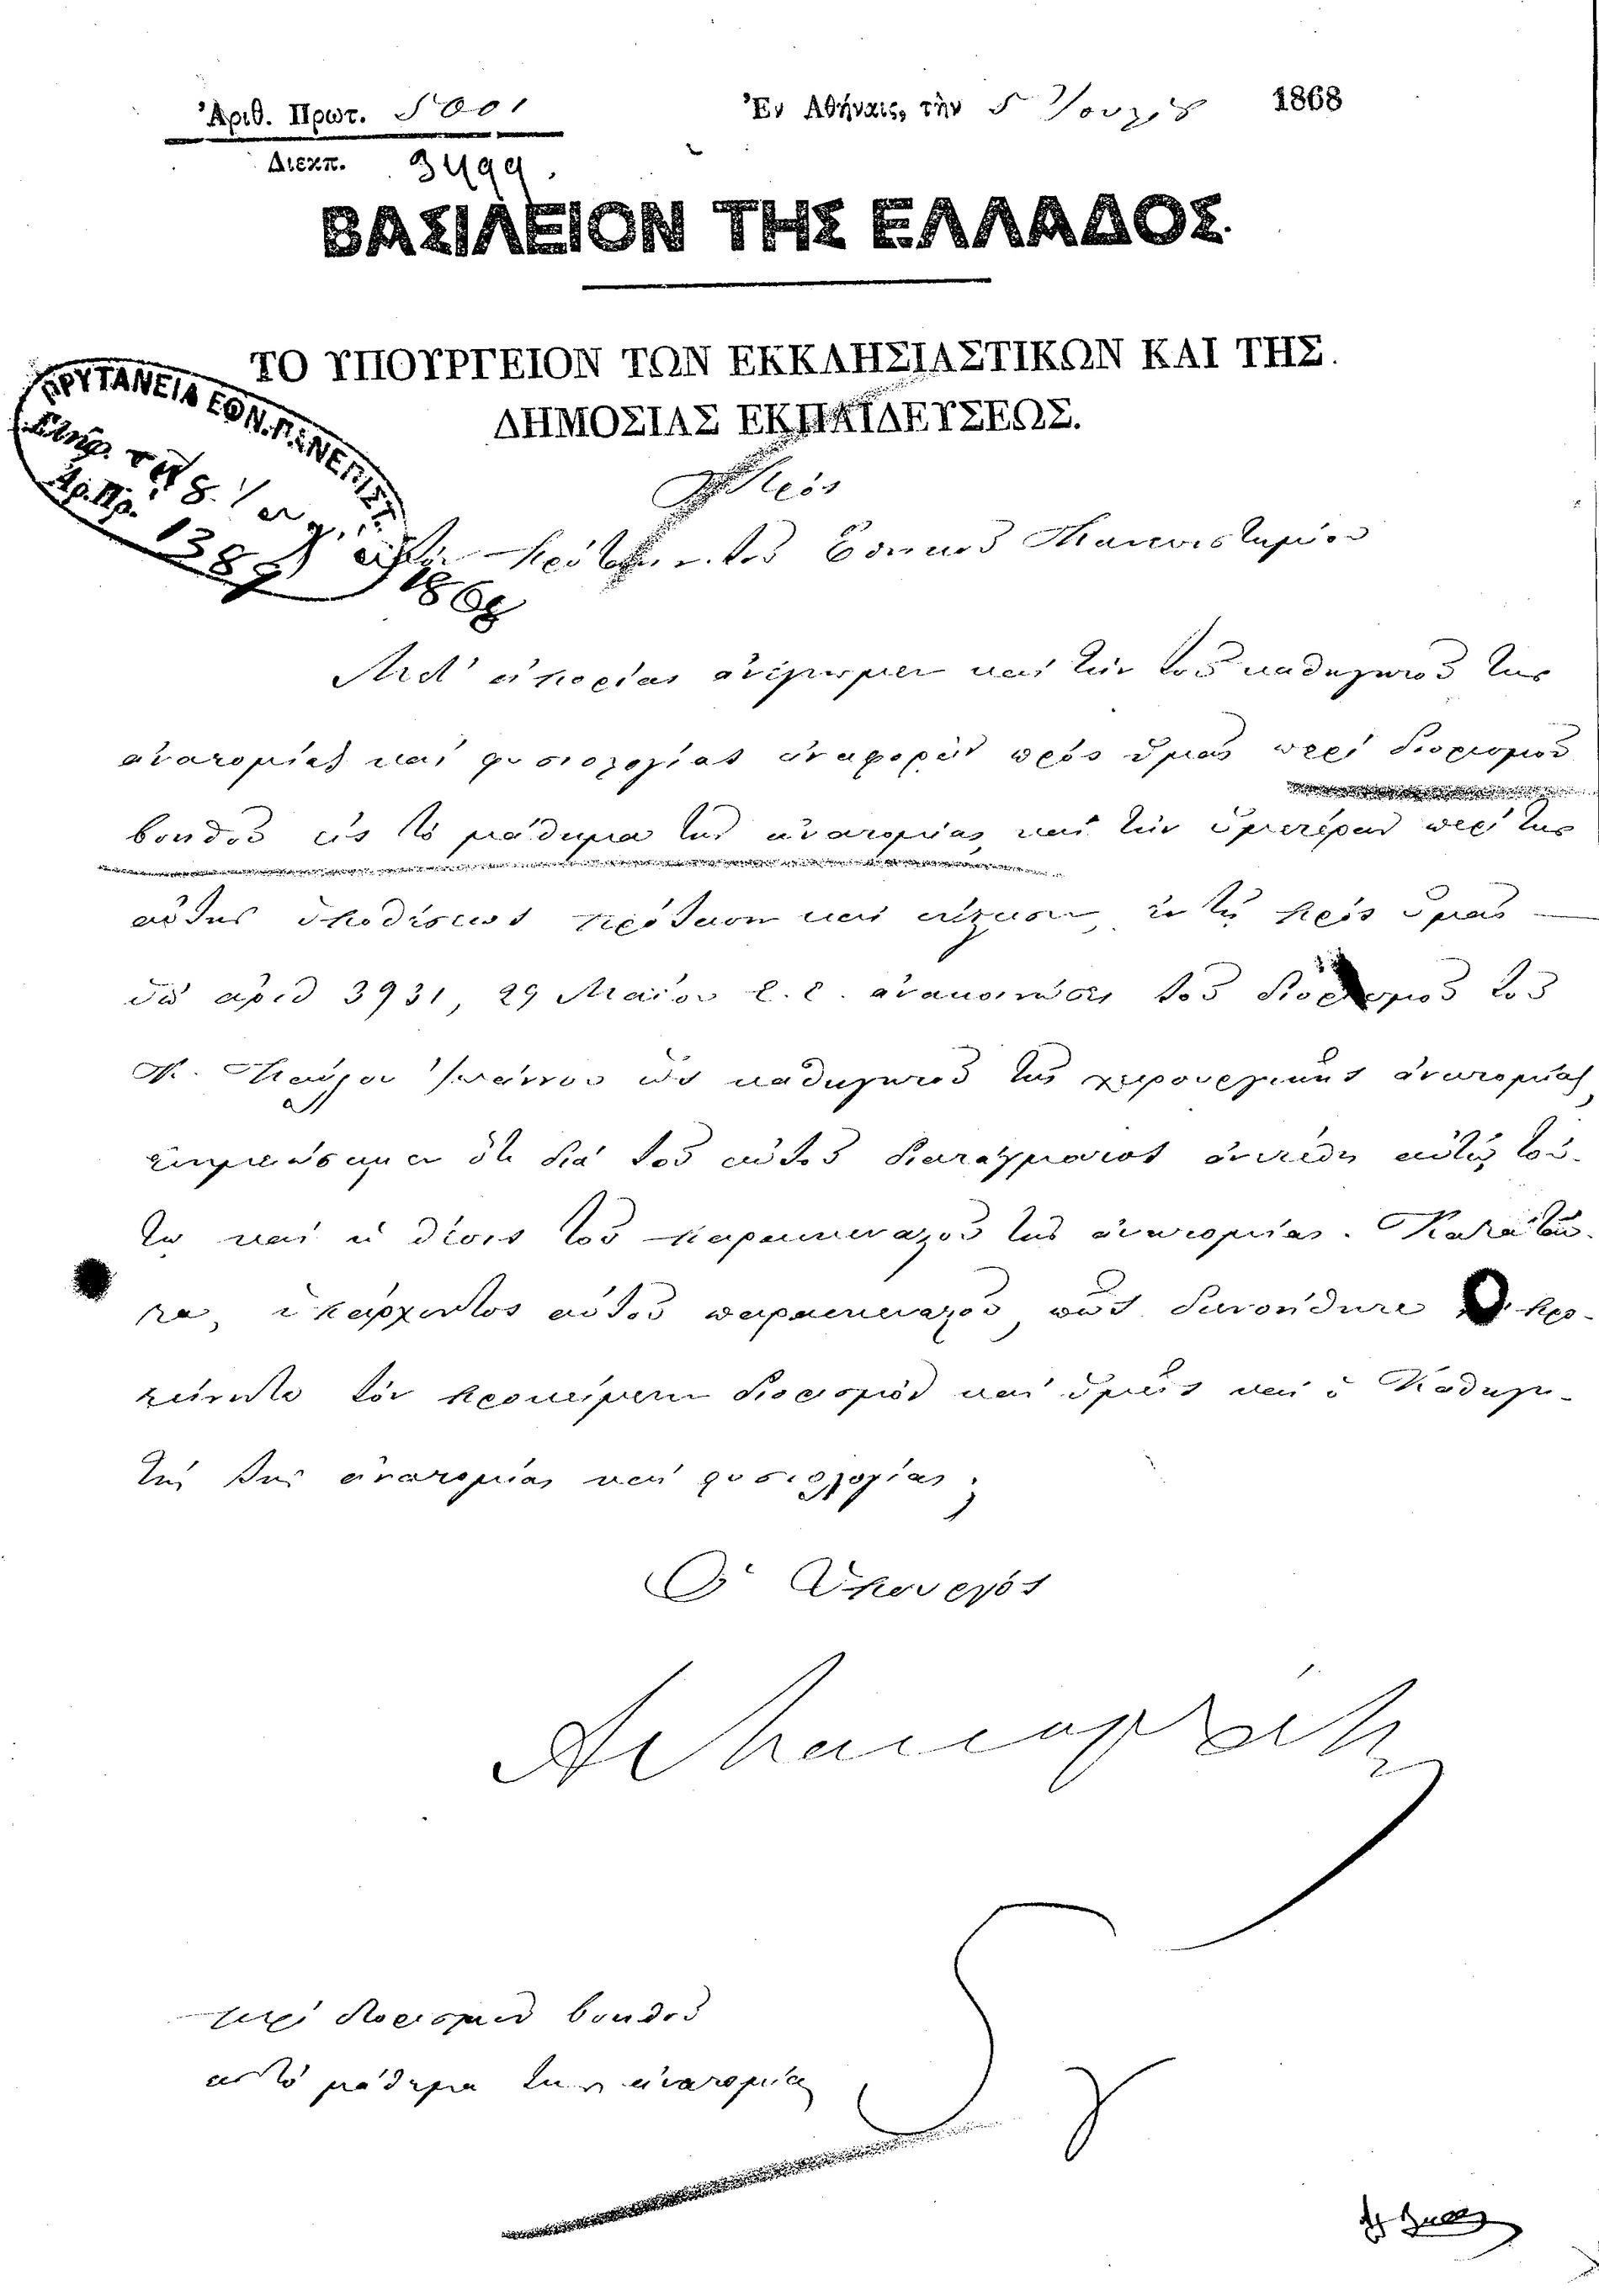 Ἀριθ. Πρωτ. 5001
Διεκπ. 3499.
Ἐν Ἀθήναις, τὴν 5 Ἰουλίου 1868
ΒΑΣΙΛΕΙΟΝ ΤΗΣ ΕΛΛΑΔΟΣ.
ΤΟ ΥΠΟΥΡΓΕΙΟΝ ΤΩΝ ΕΚΚΛΗΣΙΑΣΤΙΚΩΝ ΚΑΙ ΤΗΣ
ΔΗΜΟΣΙΑΣ ΕΚΠΑΙΔΕΥΣΕΩΣ.
ΠΡΥΤΑΝΕΙΑ ΕΘΝ. ΠΑΝΕΠΙΣΤ.
τῇ 8 Ἰουλ.
Ἀρ. Πρ. 1389
1868
Πρὸς
τὴν Πρυτανείαν τοῦ Ἐθνικοῦ Πανεπιστημίου
Μετ' ἀπορίας ἀνέγνωμεν καὶ τὴν τοῦ καθηγητοῦ τῆς
ἀνατομίας καὶ φυσιολογίας ἀναφορὰν πρὸς ὑμᾶς περὶ διορισμοῦ
βοηθοῦ εἰς τὸ μάθημα τῆς ἀνατομίας, καὶ τὴν ὑμετέραν περὶ τῆς
αὐτῆς ὑποθέσεως πρότασιν καὶ αἴτησιν, ἐν τῇ πρὸς ὑμᾶς
ὑπ' ἀριθ 3931, 29 Μαΐου ἐ. ἔ. ἀνακοινώσει τοῦ διορισμοῦ τοῦ
Κ. Παύλου Ἰωάννου ὡς καθηγητοῦ τῆς χειρουργικῆς ἀνατομίας,
ἐσημειώσαμεν ὅτι διὰ τοῦ αὐτοῦ διατάγματος ἀνετέθη αὐτῷ τού-
τῳ καὶ ἡ θέσις τοῦ παρασκευαστοῦ τῆς ἀνατομίας. Κατὰ ταῦ-
τα, ὑπάρχοντος αὐτοῦ παρασκευαστοῦ, πῶς
τὸν προκείμενον διορισμὸν καὶ ὑμεῖς καὶ ὁ Καθηγη-
τὴς τῆς ἀνατομίας καὶ φυσιολογίας;
Ὁ Ὑπουργὸς
περὶ διορισμοῦ βοηθοῦ
εἰς τὸ μάθημα τῆς ἀνατομίας